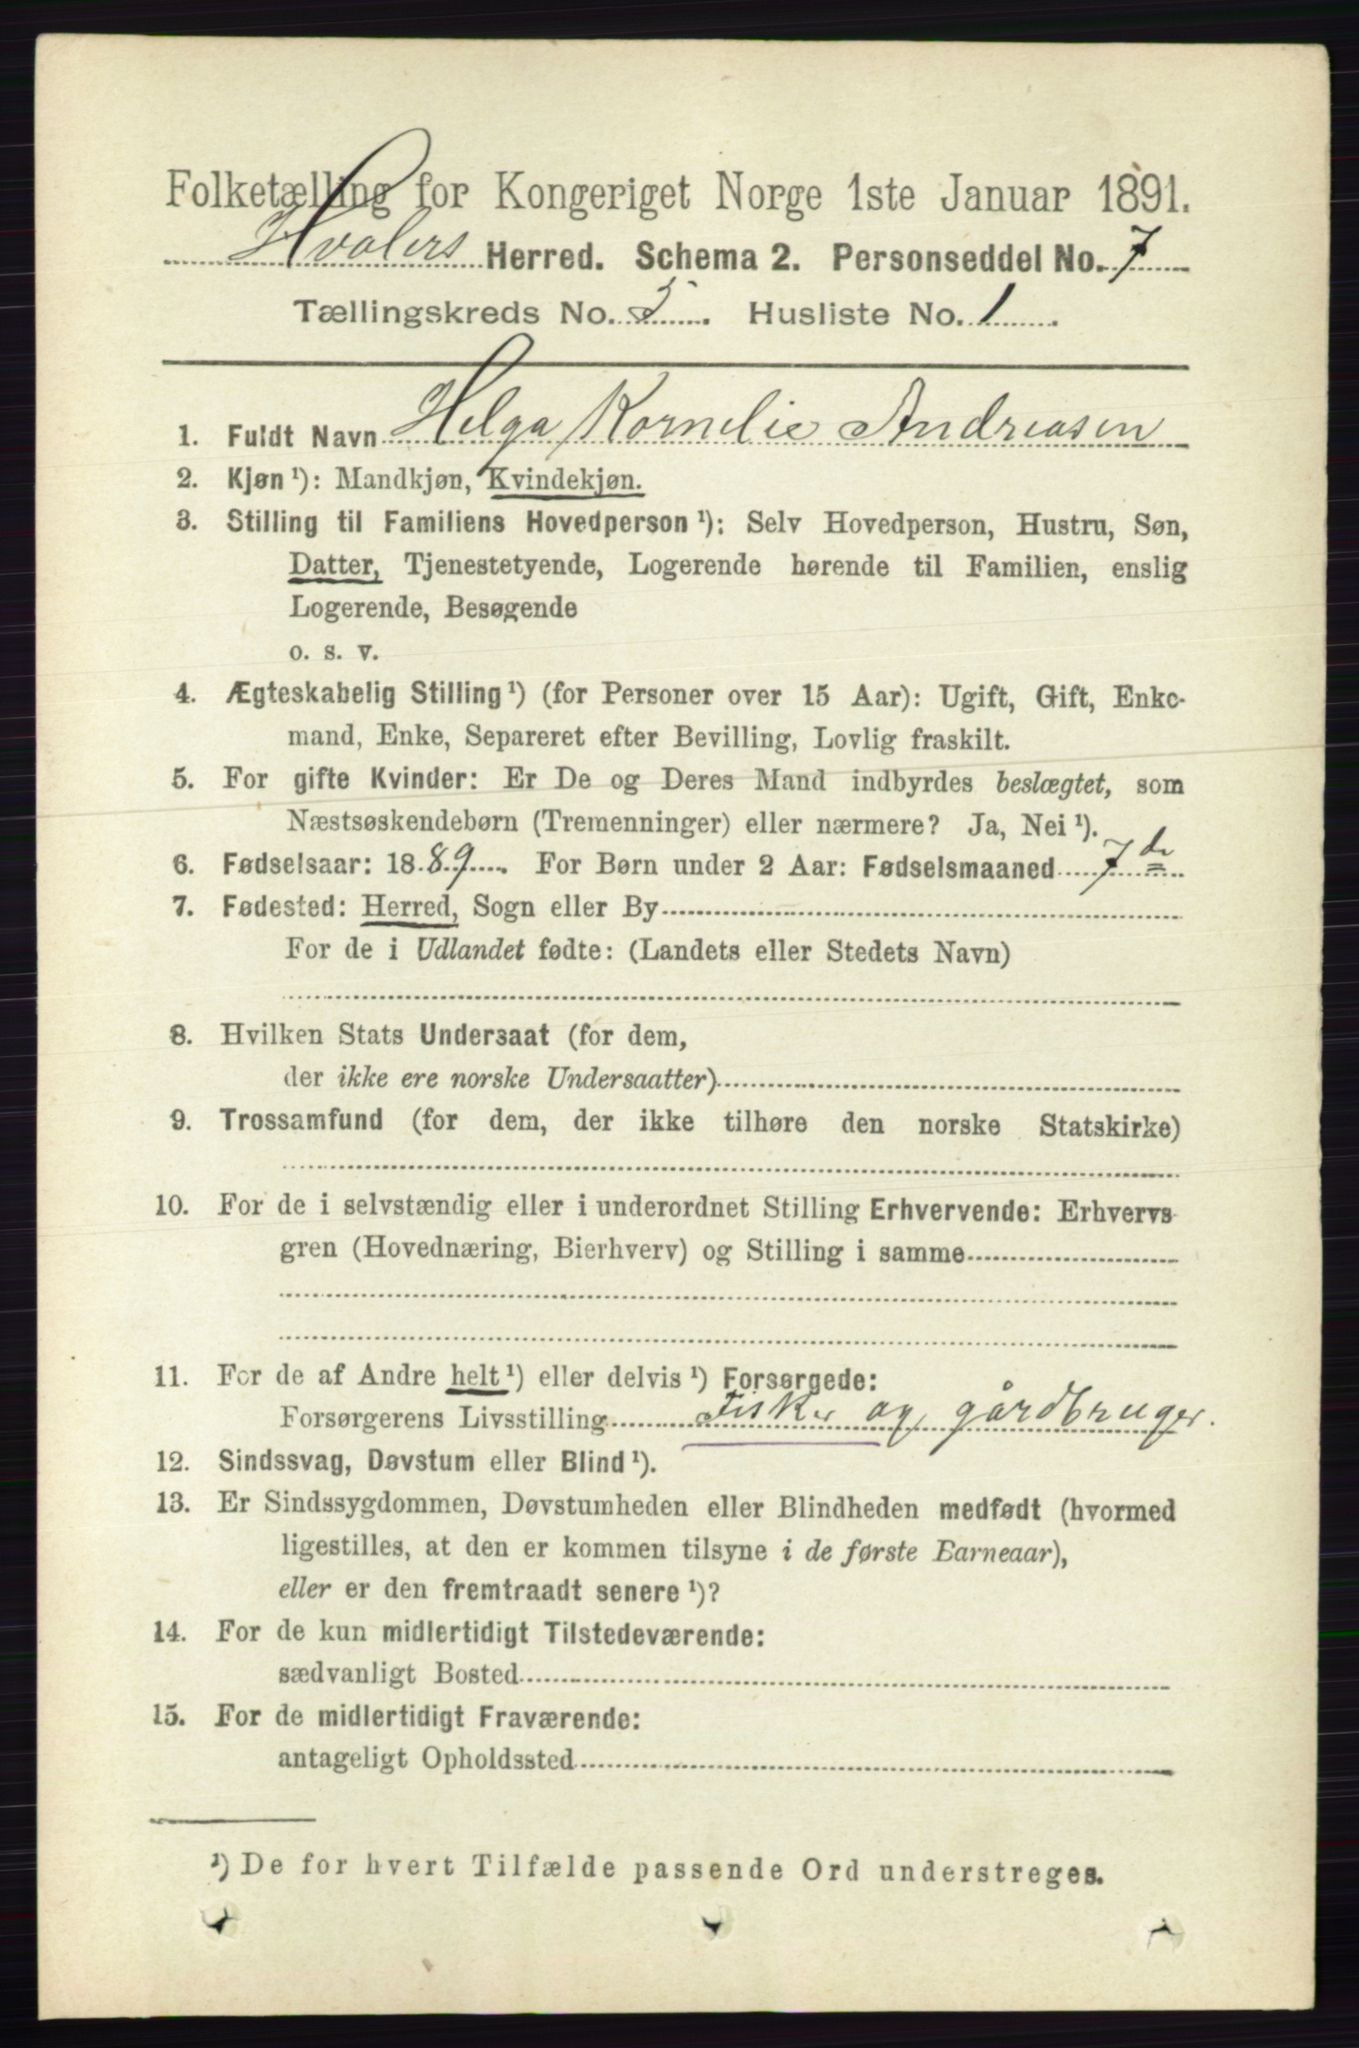 Folketælling for Kongeriget Norge 1ste Januar 1891.
Hvalers Herred. Schema 2. Personseddel No. 7
Tællingskreds No. 5. Husliste No. 1.
1. Fuldt Navn Helga Kornelie Andreasen
2. Kjøn ¹): Mandkjøn, Kvindekjøn.
3. Stilling til Familiens Hovedperson ¹): Selv Hovedperson, Hustru, Søn,
Datter, Tjenestetyende, Logerende hørende til Familien, enslig
Logerende, Besøgende
o. s. v.
4. Ægteskabelig Stilling ¹) (for Personer over 15 Aar): Ugift, Gift, Enke-
mand, Enke, Separeret efter Bevilling, Lovlig fraskilt.
5. For gifte Kvinder: Er De og Deres Mand indbyrdes beslægtet, som
Næstsøskendebørn (Tremenninger) eller nærmere? Ja, Nei ¹).
6. Fødselsaar: 1889. For Børn under 2 Aar: Fødselsmaaned 7de
7. Fødested: Herred, Sogn eller By
For de i Udlandet fødte: (Landets eller Stedets Navn)
8. Hvilken Stats Undersaat (for dem,
der ikke ere norske Undersaatter)
9. Trossamfund (for dem, der ikke tilhøre den norske Statskirke)
10. For de i selvstændig eller i underordnet Stilling Erhvervende: Erhvervs
gren (Hovednæring, Bierhverv) og Stilling i samme
11. For de af Andre helt ¹) eller delvis ¹) Forsørgede:
Forsørgerens Livsstilling Fisker og gårdbruger.
12. Sindssvag, Døvstum eller Blind ¹).
13. Er Sindssygdommen, Døvstumheden eller Blindheden medfødt (hvormed
ligestilles, at den er kommen tilsyne i de første Barneaar),
eller er den fremtraadt senere ¹)?
14. For de kun midlertidigt Tilstedeværende:
sædvanligt Bosted
15. For de midlertidigt Fraværende:
antageligt Opholdssted
¹) De for hvert Tilfælde passende Ord understreges.